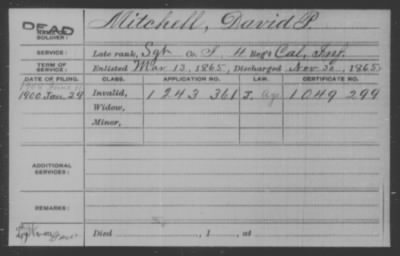 DEAD
Mitchell, David P.
SOLDIER:
SERVICE: Late rank, Sgt Co. I, 4 Reg't Cal. Inf.
TERM OF SERVICE: Enlisted Mar 13, 1865, Discharged Nov 30, 1865
DATE OF FILING. CLASS. APPLICATION NO. LAW. CERTIFICATE NO.
1900 Jan. 29 Invalid, 1243 361 J. 1049 299
Widow,
Minor,
ADDITIONAL SERVICES:
REMARKS:
Died , 1 , at